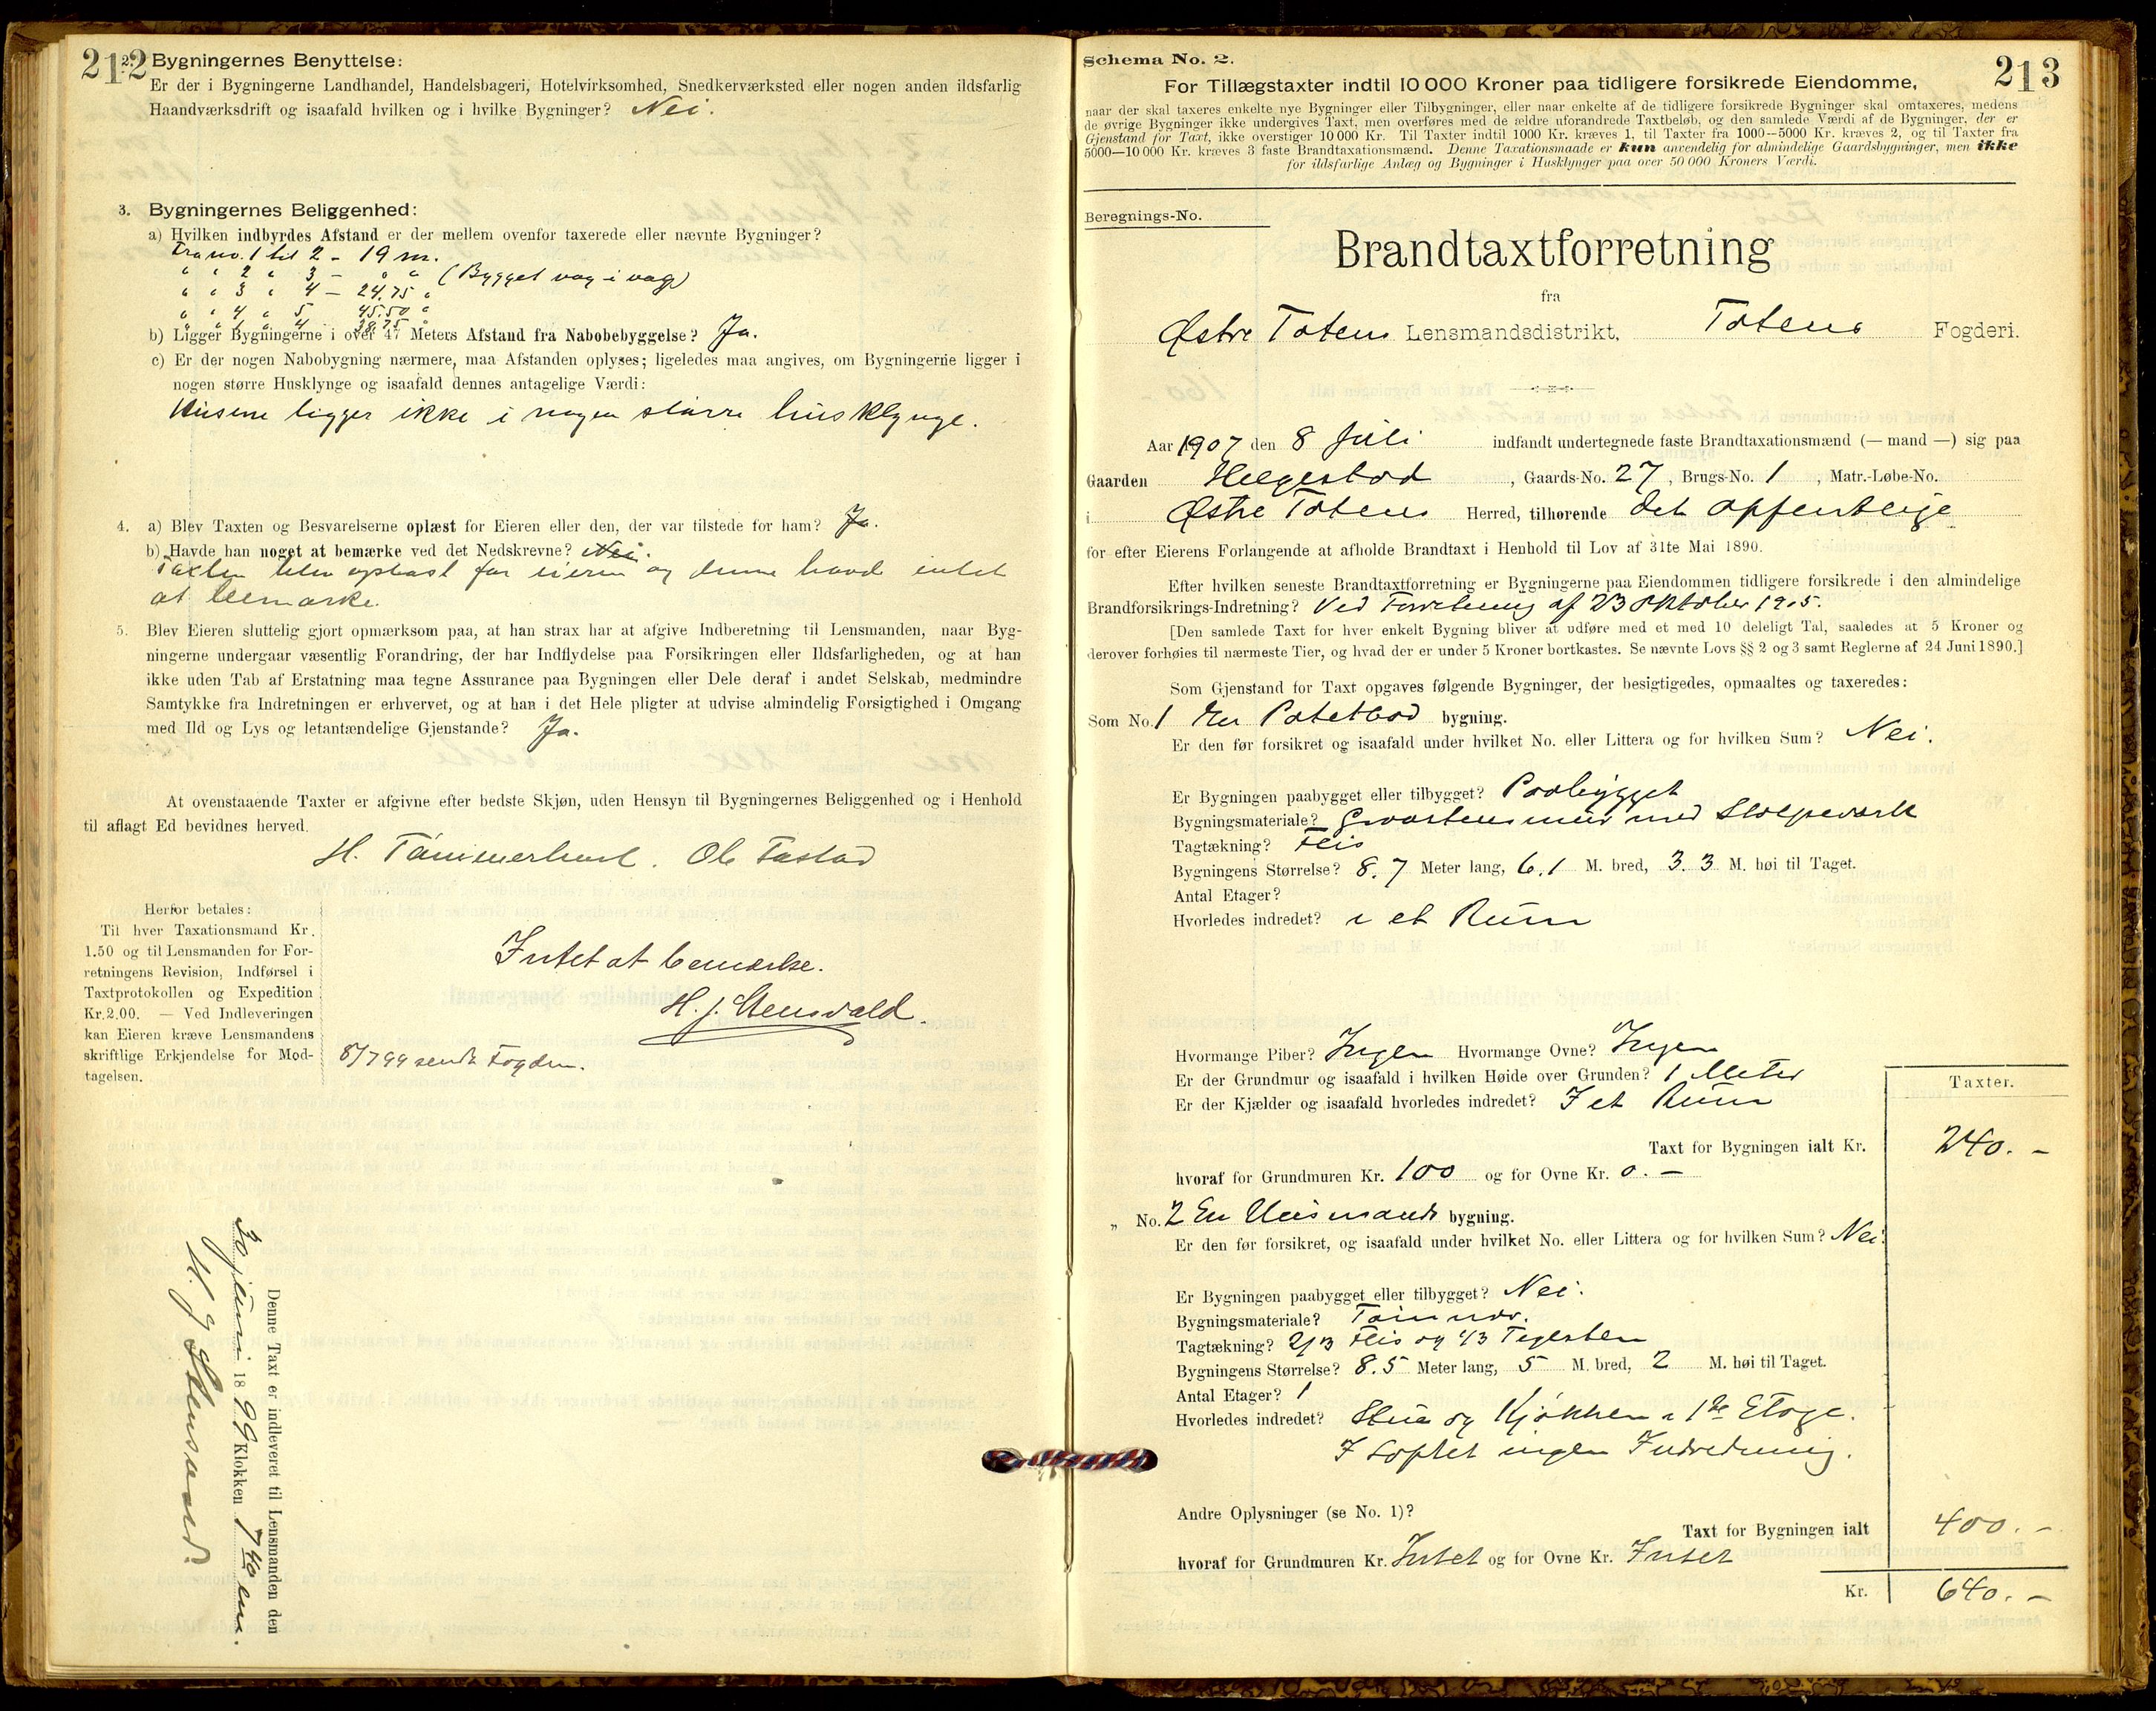 212
2. Bygningernes Benyttelse:
Er der i Bygningerne Landhandel, Handelsbageri, Hotelvirksomhed, Snedkerværksted eller nogen anden ildsfarlig
Haandværksdrift og isaafald hvilken og i hvilke Bygninger? Nei.
3. Bygningernes Beliggenhed:
a) Hvilken indbyrdes Afstand er der mellem ovenfor taxerede eller nævnte Bygninger?
Fra no. 1 til 2 - 19 m.
" " 2 " 3 - " " (Bygget væg i væg)
" " 3 " 4 - 24,75 "
" " 4 " 5 45.50 "
" " 1 " 4 38.75 "
b) Ligger Bygningerne i over 47 Meters Afstand fra Nabobebyggelse? Ja.
c) Er der nogen Nabobygning nærmere, maa Afstanden oplyses; ligeledes maa angives, om Bygningerne ligger i
nogen større Husklynge og isaafald dennes antagelige Værdi:
Husene ligger ikke i nogen større husklynge.
4. a) Blev Taxten og Besvarelserne oplæst for Eieren eller den, der var tilstede for ham? Ja.
b) Havde han noget at bemærke ved det Nedskrevne? Nei.
Taxten blev oplæst for eieren og denne havde intet
at bemærke.
5. Blev Eieren sluttelig gjort opmærksom paa, at han strax har at afgive Indberetning til Lensmanden, naar Byg-
ningerne undergaar væsentlig Forandring, der har Indflydelse paa Forsikringen eller Ildsfarligheden, og at han
ikke uden Tab af Erstatning maa tegne Assurance paa Bygningen eller Dele deraf i andet Selskab, medmindre
Samtykke fra Indretningen er erhvervet, og at han i det Hele pligter at udvise almindelig Forsigtighed i Omgang
med Ild og Lys og letantændelige Gjenstande? Ja.
At ovenstaaende Taxter er afgivne efter bedste Skjøn, uden Hensyn til Bygningernes Beliggenhed og i Henhold
til aflagt Ed bevidnes herved.
H. Tømmerhol. Ole Fastad
Herfor betales:
Til hver Taxationsmand Kr.
1.50 og til Lensmanden for For-
retningens Revision, Indførsel i
Taxtprotokollen og Expedition
Kr. 2.00. — Ved Indleveringen
kan Eieren kræve Lensmandens
skriftlige Erkjendelse for Mod-
tagelsen.
Intet at bemærke.
H. J. Stensvald
8/7 99 sendt Fogden.
Denne Taxt er indleveret til Lensmanden den
30 juni 1899 Klokken 7 40 em.
H. J. Stensvald.
213
Schema No. 2.
For Tillægstaxter indtil 10 000 Kroner paa tidligere forsikrede Eiendomme,
naar der skal taxeres enkelte nye Bygninger eller Tilbygninger, eller naar enkelte af de tidligere forsikrede Bygninger skal omtaxeres, medens
de øvrige Bygninger ikke undergives Taxt, men overføres med de ældre uforandrede Taxtbeløb, og den samlede Værdi af de Bygninger, der er
Gjenstand for Taxt, ikke overstiger 10 000 Kr. Til Taxter indtil 1000 Kr. kræves 1, til Taxter fra 1000—5000 Kr. kræves 2, og til Taxter fra
5000—10 000 Kr. kræves 3 faste Brandtaxationsmænd. Denne Taxationsmaade er kun anvendelig for almindelige Gaardsbygninger, men ikke
for ildsfarlige Anlæg og Bygninger i Husklynger paa over 50 000 Kroners Værdi.
Beregnings-No.
Brandtaxtforretning
fra
Østre Totens Lensmandsdistrikt, Totens Fogderi.
Aar 1907 den 8 Juli indfandt undertegnede faste Brandtaxationsmænd (— mand —) sig paa
Gaarden Helgestad, Gaards-No. 27, Brugs-No. 1, Matr.-Løbe-No.
i Østre Totens Herred, tilhørende det offentlige
for efter Eierens Forlangende at afholde Brandtaxt i Henhold til Lov af 31te Mai 1890.
Efter hvilken seneste Brandtaxtforretning er Bygningerne paa Eiendommen tidligere forsikrede i den almindelige
Brandforsikrings-Indretning? Ved Forretning af 23 Oktober 1905.
[Den samlede Taxt for hver enkelt Bygning bliver at udføre med et med 10 deleligt Tal, saaledes at 5 Kroner og
derover forhøies til nærmeste Tier, og hvad der er under 5 Kroner bortkastes. Se nævnte Lovs §§ 2 og 3 samt Reglerne af 24 Juni 1890.]
Som Gjenstand for Taxt opgaves følgende Bygninger, der besigtigedes, opmaaltes og taxeredes:
Som No. 1 En Potetbod bygning.
Er den før forsikret og isaafald under hvilket No. eller Littera og for hvilken Sum? Nei.
Er Bygningen paabygget eller tilbygget? Paabygget
Bygningsmateriale? Graastensmur med Stolpeværk
Tagtækning? Flis
Bygningens Størrelse? 8.7 Meter lang, 6.1 M. bred, 3.3 M. høi til Taget.
Antal Etager?
Hvorledes indredet? i et Rum
Hvormange Piber? Ingen Hvormange Ovne? Ingen
Er der Grundmur og isaafald i hvilken Høide over Grunden? 1 Meter
Er der Kjælder og isaafald hvorledes indredet? I et Rum
Taxter.
Taxt for Bygningen ialt Kr. 240. –
hvoraf for Grundmuren Kr. 100 og for Ovne Kr. 0. –
„ No. 2 En Husmands bygning.
Er den før forsikret, og isaafald under hvilket No. eller Littera og for hvilken Sum? Nei.
Er Bygningen paabygget eller tilbygget? Nei.
Bygningsmateriale? Tømmer.
Tagtækning? 2/3 Flis og 1/3 Teglsten
Bygningens Størrelse? 8.5 Meter lang, 5 M. bred, 2 M. høi til Taget.
Antal Etager? 1
Hvorledes indredet? Stue og Kjøkken i 1ste Etage.
I Loftet ingen Indredning.
Andre Oplysninger (se No. 1)?
Taxt for Bygningen ialt 400. –
hvoraf for Grundmuren Kr. Intet og for Ovne Kr. Intet
Kr. 640. –